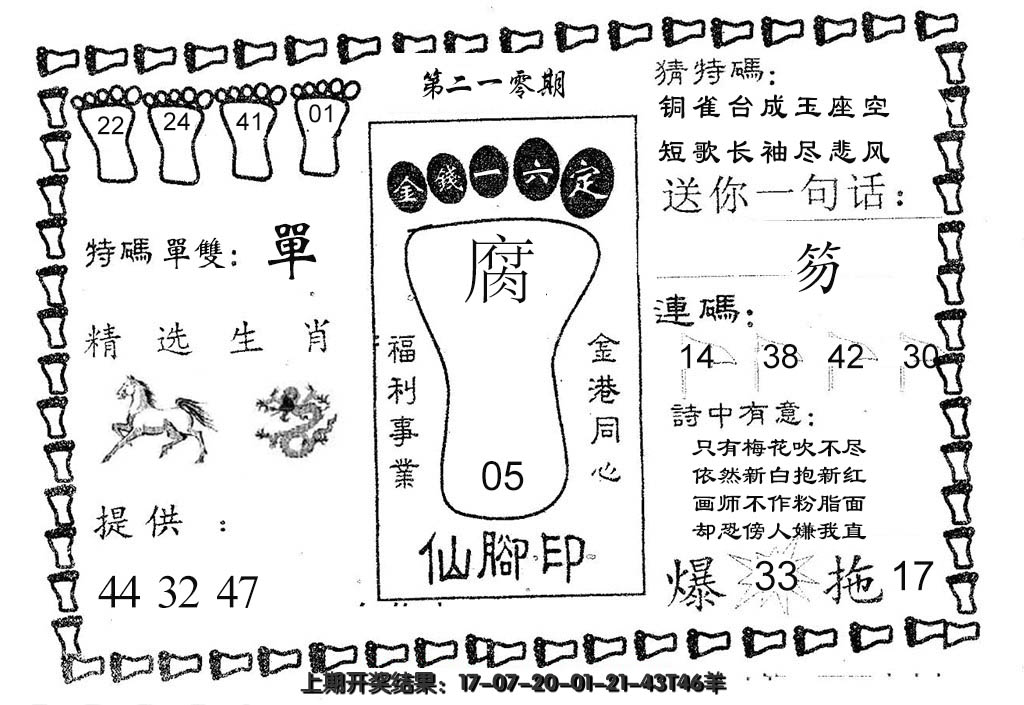 第二一零期
22 24 41 01
特碼單雙：單
精选生肖
提供：
44 32 47
金錢一六定
腐
05
福利事業
金港同心
仙腳印
猜特碼：
铜雀台成玉座空
短歌长袖尽悲风
送你一句话：
笏
連碼：
14 38 42 30
詩中有意：
只有梅花吹不尽
依然新白抱新红
画师不作粉脂面
却恐傍人嫌我直
爆 33 拖 17
上期开奖结果：17-07-20-01-21-43T46羊